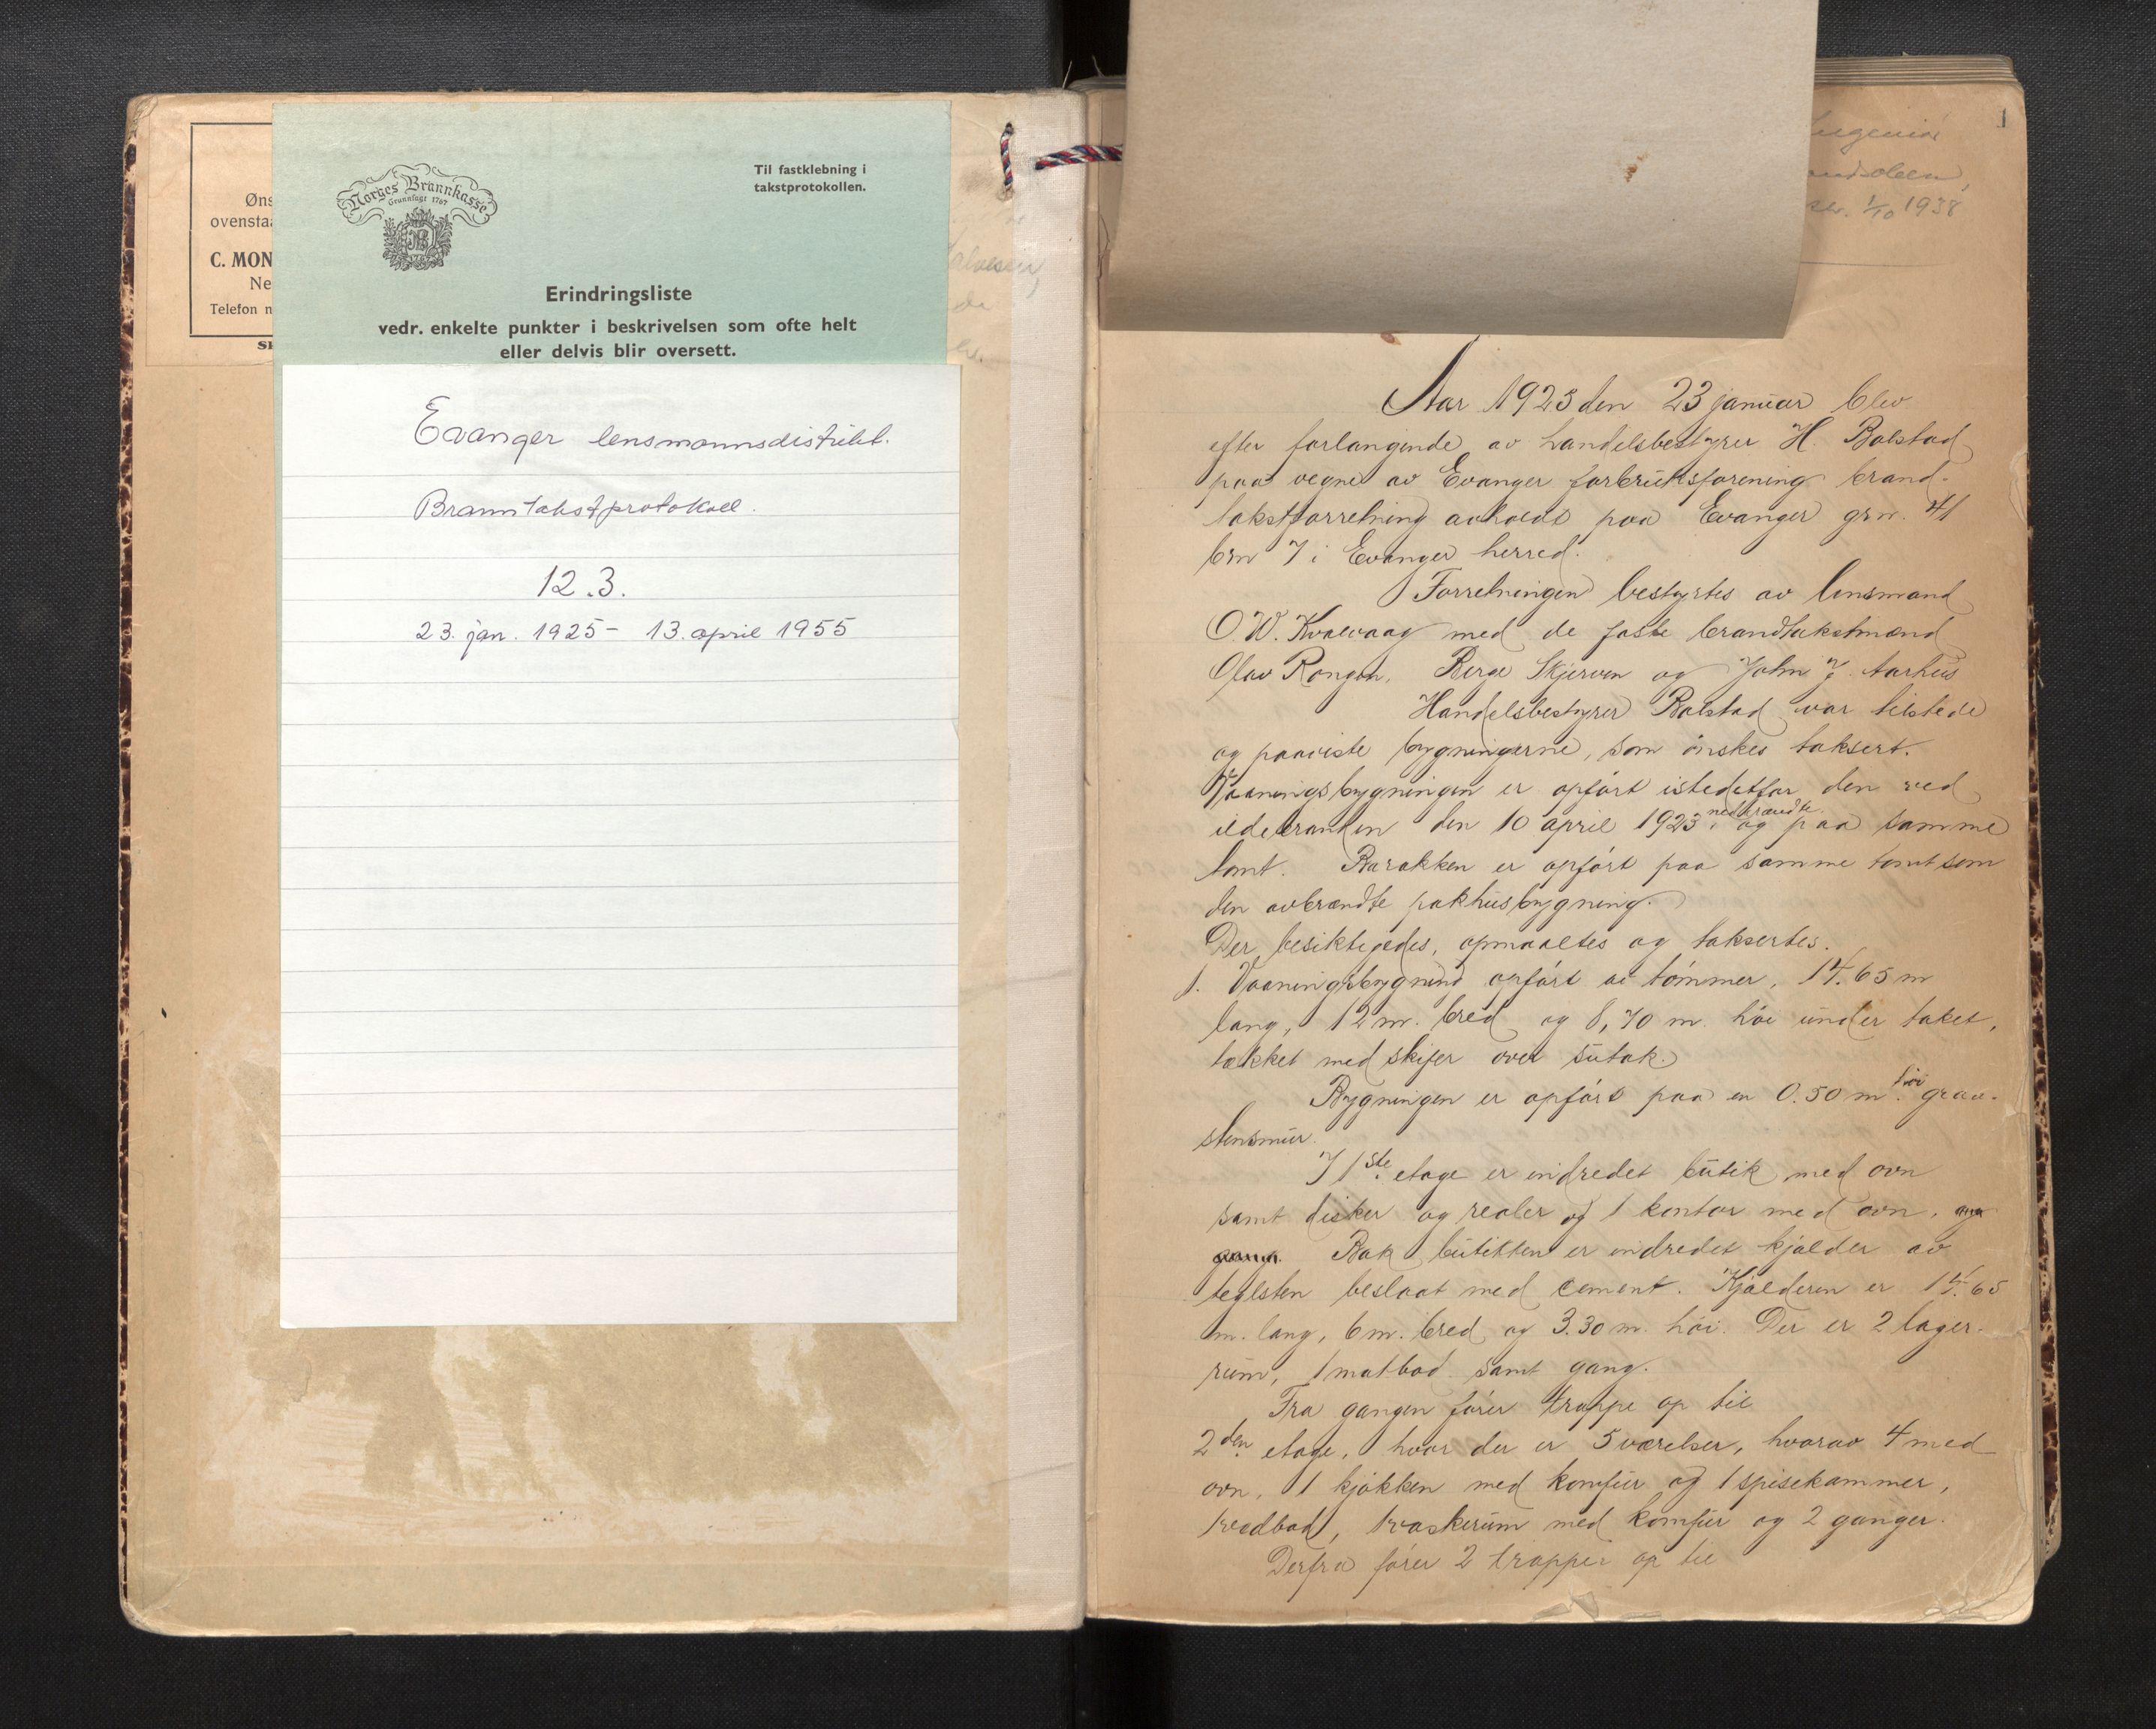 Øns
ovenstaa
C. MON
Ne
Telefon n
Norges Brannkasse
Grunnlagt 1767
Til fastklebning i
takstprotokollen.
Erindringsliste
vedr. enkelte punkter i beskrivelsen som ofte helt
eller delvis blir oversett.
Evanger lensmannsdistrikt.
Branntakstprotokoll.
12.3.
23. jan. 1925 - 13. april 1955
1
1/10 1938
Aar 1925 den 23 januar blev
efter forlangende av handelsbestyrer H. Bolstad
paa vegne av Evanger forbruksforening brand-
takstforretning avholdt paa Evanger grn. 41
brn 7 i Evanger herred.
Forretningen bestyrtes av lensmand
O. W. Kvalvaag med de faste brandtakstmænd
Olav Rongen, Berge Skjerven og John J. Aarhus
Handelsbestyrer Bolstad var tilstede
og paaviste bygningerne, som ønskes taksert.
Vaaningsbygningen er opført istedetfor den ved
ildebranden den 10 april 1923 nedbrændte og paa samme
tomt. Barakken er opført paa samme tomt som
den avbrændte pakhusbygning.
Der besiktigedes, opmaaltes og taksertes.
1. Vaaningsbygning opført av tømmer, 14.65 m
lang, 12 m. bred og 8,70 m. høi under taket,
tækket med skifer over sutak.
Bygningen er opført paa en 0.50 m. høi graa-
stensmur.
I 1ste etage er indredet butik med ovn
samt disker og reoler og 1 kontor med ovn.
Bak butikken er indredet kjælder av
teglsten beslaat med cement. Kjælderen er 14.65
m. lang, 6 m. bred og 3.30 m. høi. Der er 2 lager-
rum, 1 matbod samt gang.
Fra gangen fører trappe op til
2den etage, hvor der er 5 værelser, hvorav 4 med
ovn, 1 kjøkken med komfur og 1 spisekammer,
1 vedbod, 1 vaskerum med komfur og 2 ganger.
Derfra fører 2 trapper op til